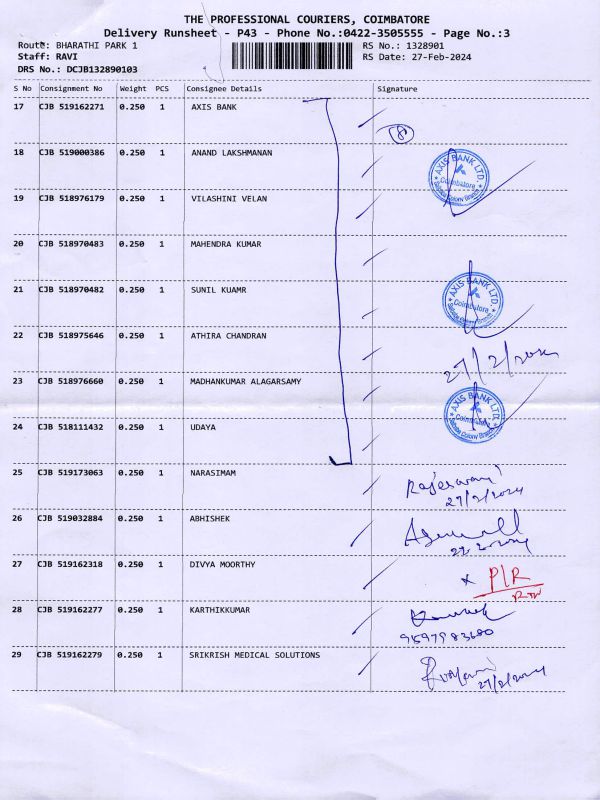 THE PROFESSIONAL COURIERS, COIMBATORE
Delivery Runsheet - P43 - Phone No.:0422-3505555 - Page No.:3
Route: BHARATHI PARK 1 RS No.: 1328901
Staff: RAVI RS Date: 27-Feb-2024
DRS No.: DCJB132890103
S No Consignment No Weight PCS Consignee Details Signature
17 CJB 519162271 0.250 1 AXIS BANK
8
18 CJB 519000386 0.250 1 ANAND LAKSHMANAN
AXIS BANK LTD.
Coimbatore
19 CJB 518976179 0.250 1 VILASHINI VELAN
20 CJB 518970483 0.250 1 MAHENDRA KUMAR
21 CJB 518970482 0.250 1 SUNIL KUAMR
AXIS BANK LTD.
Coimbatore
22 CJB 518975646 0.250 1 ATHIRA CHANDRAN
23 CJB 518976660 0.250 1 MADHANKUMAR ALAGARSAMY
AXIS BANK LTD.
Coimbatore
24 CJB 518111432 0.250 1 UDAYA
25 CJB 519173063 0.250 1 NARASIMAM
27/2/2024
26 CJB 519032884 0.250 1 ABHISHEK
27 CJB 519162318 0.250 1 DIVYA MOORTHY
P/R
28 CJB 519162277 0.250 1 KARTHIKKUMAR
9597983680
29 CJB 519162279 0.250 1 SRIKRISH MEDICAL SOLUTIONS
27/2/2024